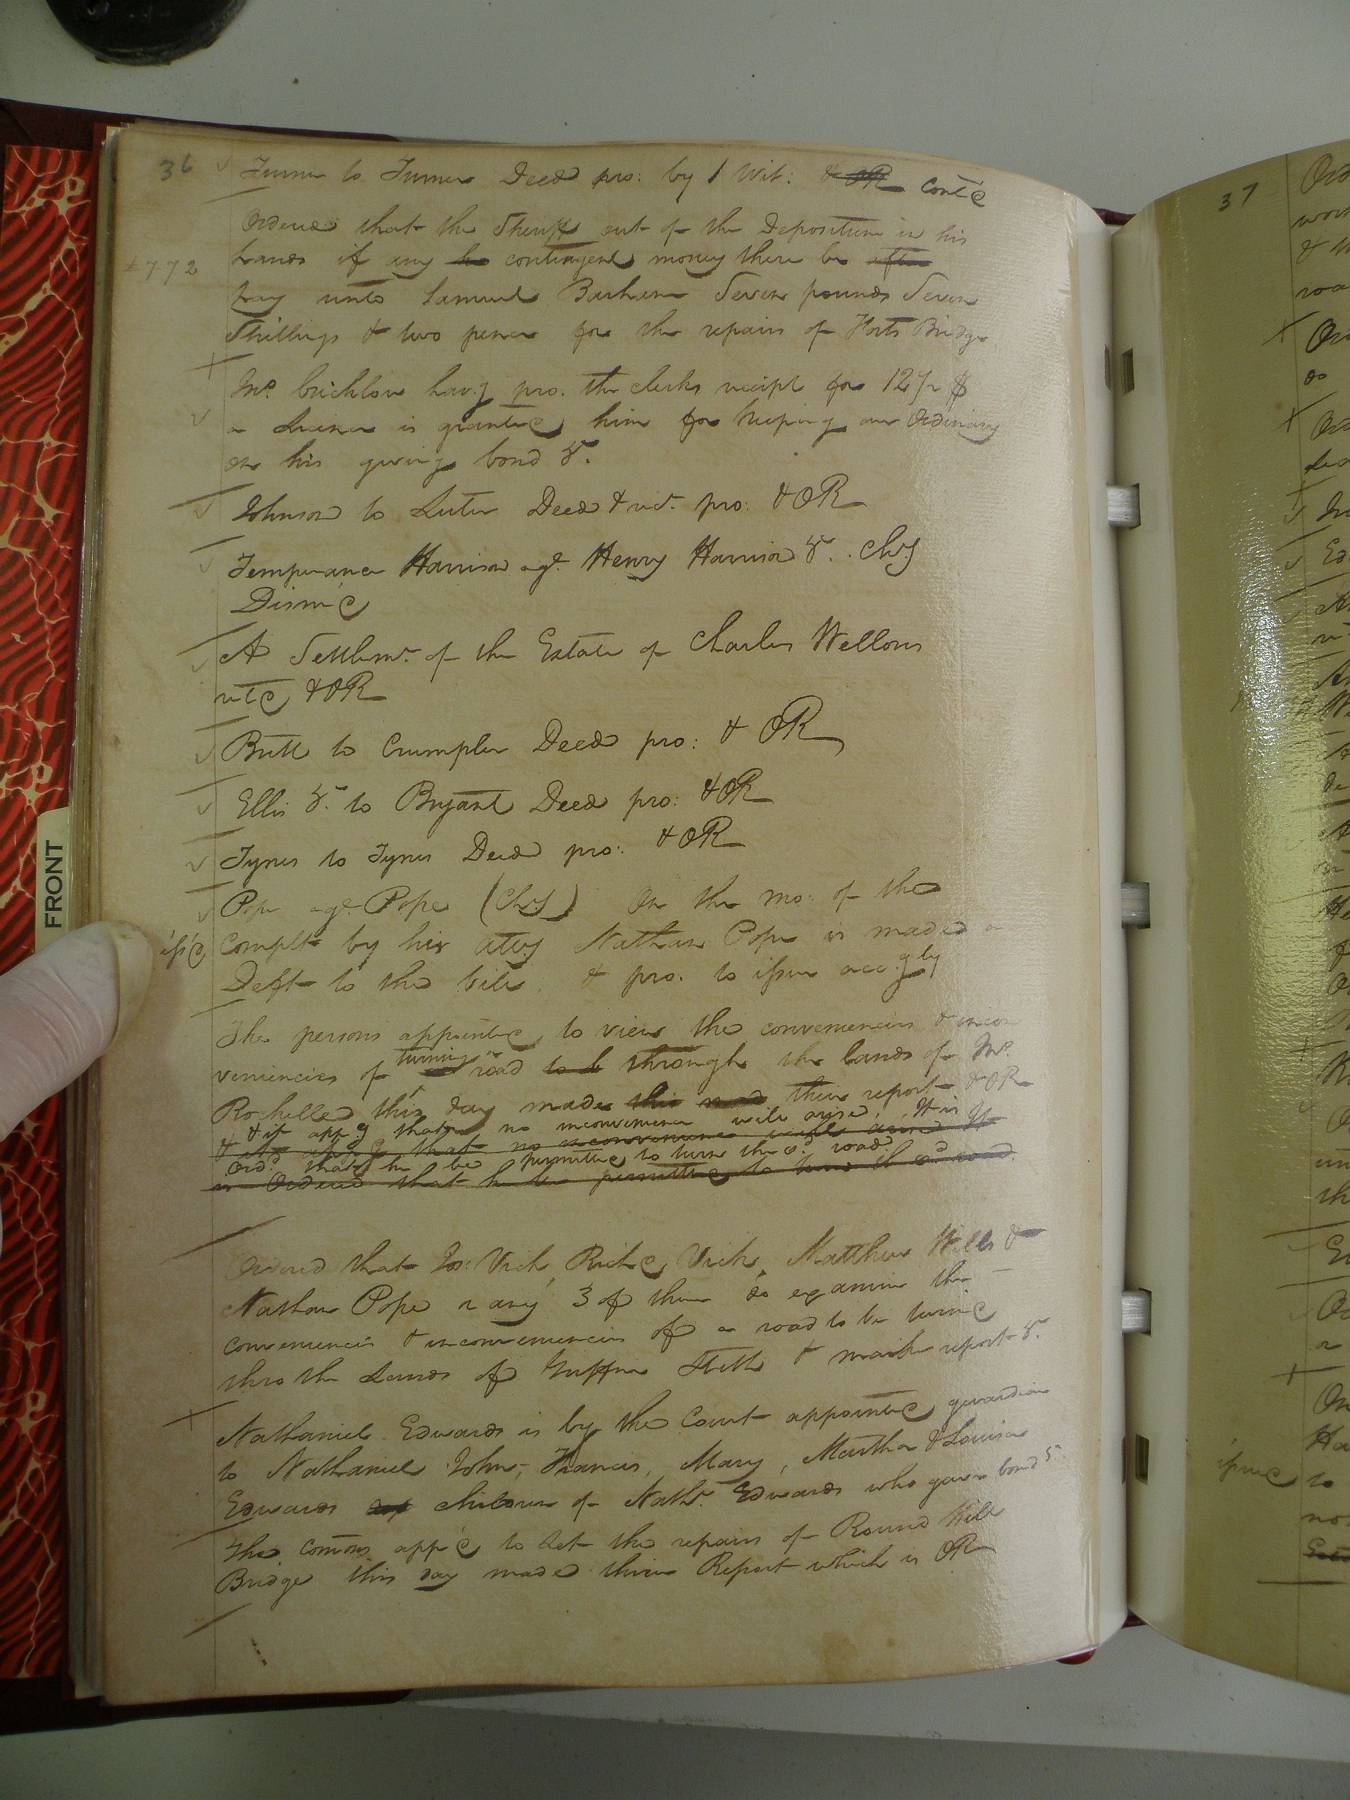 36 Turner to Turner Deed pro: by 1 Wit: & OR Cont'd
Ordered that the Sheriff out of the Depositum in his
£ 7 7 2 hands if any be contingent money there be after
Pay unto Samuel Barham Seven pounds Seven
Shillings & two pence for the repairs of Harts Bridge
Mr. Crichlow hav.g pro. the clerks receipt for 12
a License is granted him for keeping an Ordinary
on his giving bond &c.
Johnson to Luter Deed & rect. pro: & OR
Temperance Harrison agt. Henry Harrison &c. Chy
Dism'd
A Settlemt. of the Estate of Charles Wellons
retd & OR
Britt to Crumpler Deed pro: & OR
Ellis &c. to Bryant Deed pro: & OR
Tynes to Tynes Deed pro: & OR
Pope agt. Pope (Chy) On the mo: of the
iss'd Complt by his atty Nathan Pope is made a
Deft to the bill. & pro. to issue acc.gly
The persons appointed to view the conveniencies & incon
veniencies of turning a road to b through the lands of Mr.
Rochelle this day made this road their report & OR
& it app.g that no inconvenience will arise, It is
& it app.g that no inconvenience will arise It
Ord'd that he be permitted to turn the sd. road.
is Ordered that he be permitted to turn th sd road.
Ordered that Jos: Vick, Richd Vick, Matthew Wills &
Nathan Pope or any 3 of them do examine the
conveniencies & inconveniencies of a road to be turn'd
thro the Lands of Stith & make report &c.
Nathaniel Edwards is by the Court appointed guardian
to Nathaniel John, Francis, Mary, Martha & Louisa
Edwards children of Nathl. Edwards who gave bond &c
The comrs app'd to let the repairs of Round Hill
Bridge this day made their Report which is OR
FRONT
37
issued